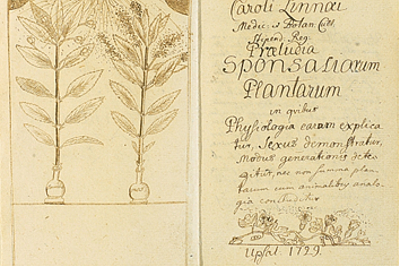 Caroli Linnæi
Medic: & Botan. Cult.
Stipend. Reg.
Præludia
Sponsaliarum
Plantarum
in quibus
Physiologia earum explica
tur, Sexus demonstratur,
modus generationis dete
gitur, nec non summa plan
tarum cum animalibus analo
gia concluditur
Upsal. 1729.